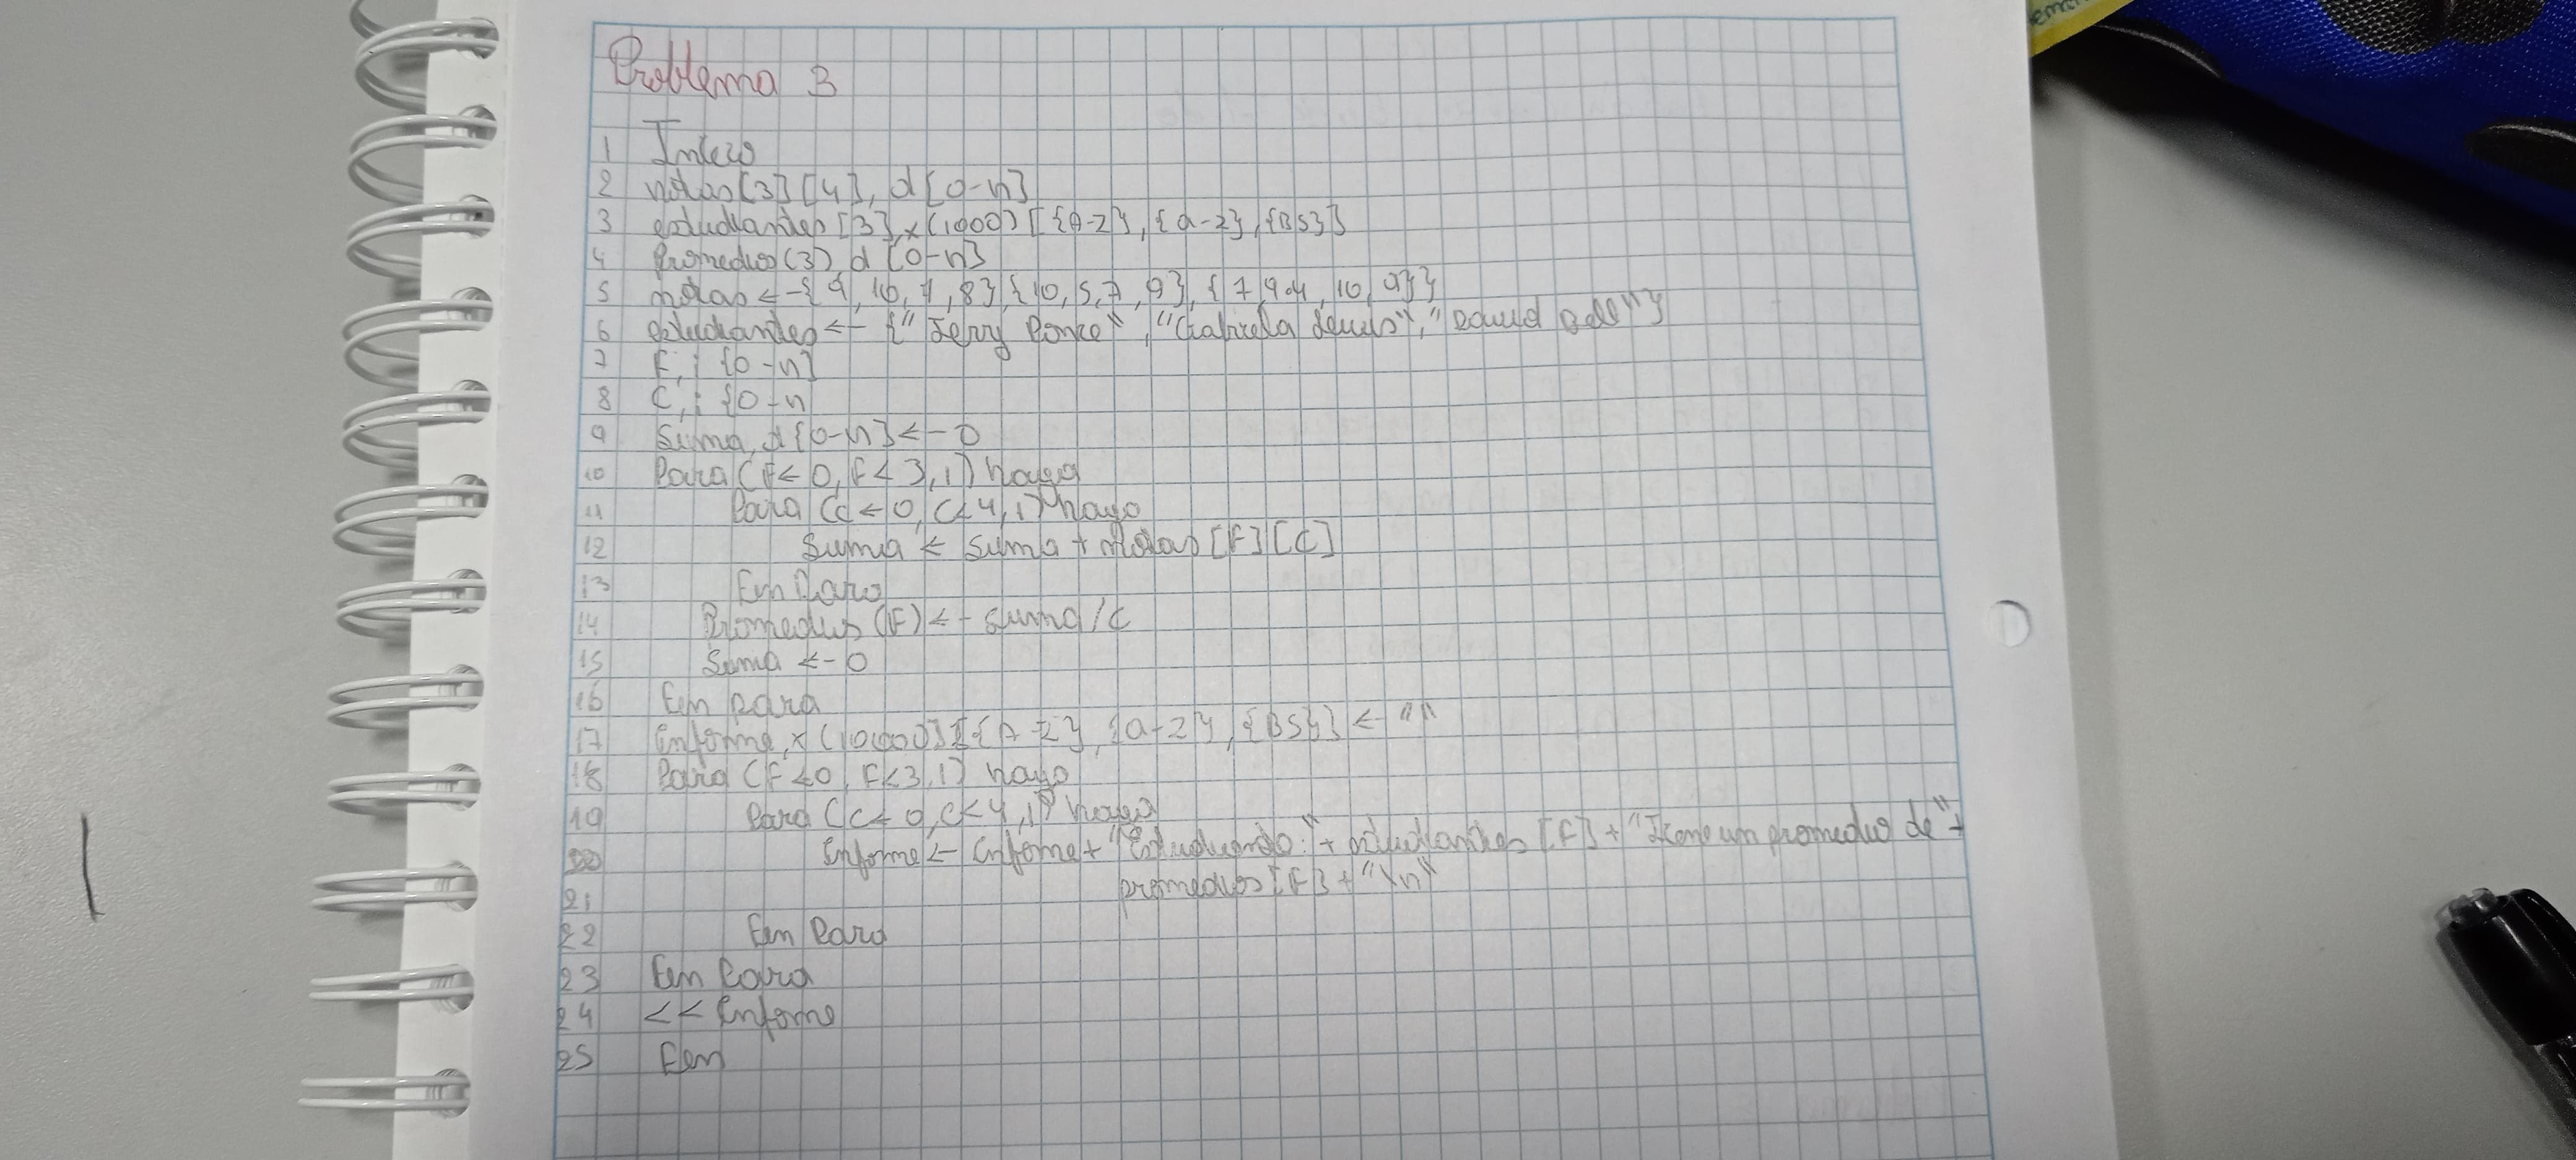 Problema 3
1 Inicio
2 notas[3][4], d[0-n]
3 estudiantes[3],x(1000)[{A-Z},{a-z},{BS}]
4 Promedios(3), d[0-n]
5 notas <-{9, 10, 7, 8}{10, 5, 7, 9}, {7, 9.4, 10, 9}}
6 estudiantes <- {"Jerry Ponce", "Gabriela
7 F, i {0-n}
8 C, i {0-n
9 Suma, d{0-n} <- 0
10 Para (F< 0, F< 3, 1) haga
11 Para (C < 0, C< 4, 1) haga
12 Suma < Suma + Notas [F][C]
13 Fin Para
14 Promedios (F) <- suma/C
15 Suma <- 0
16 Fin para
17 informe, x (10000)[{A-Z}, {a-z}, {BS}] <- ""
18 Para (F<0, F<3,1) haga
19 Para (C< 0, C<4,1) haga
20 Informe <- informe + "Estudiando:" + estudiantes [F] + "Tiene un promedio de" +
21 promedios[F] + "\n"
22 Fin Para
23 Fin Para
24 << Informe
25 Fin
semana